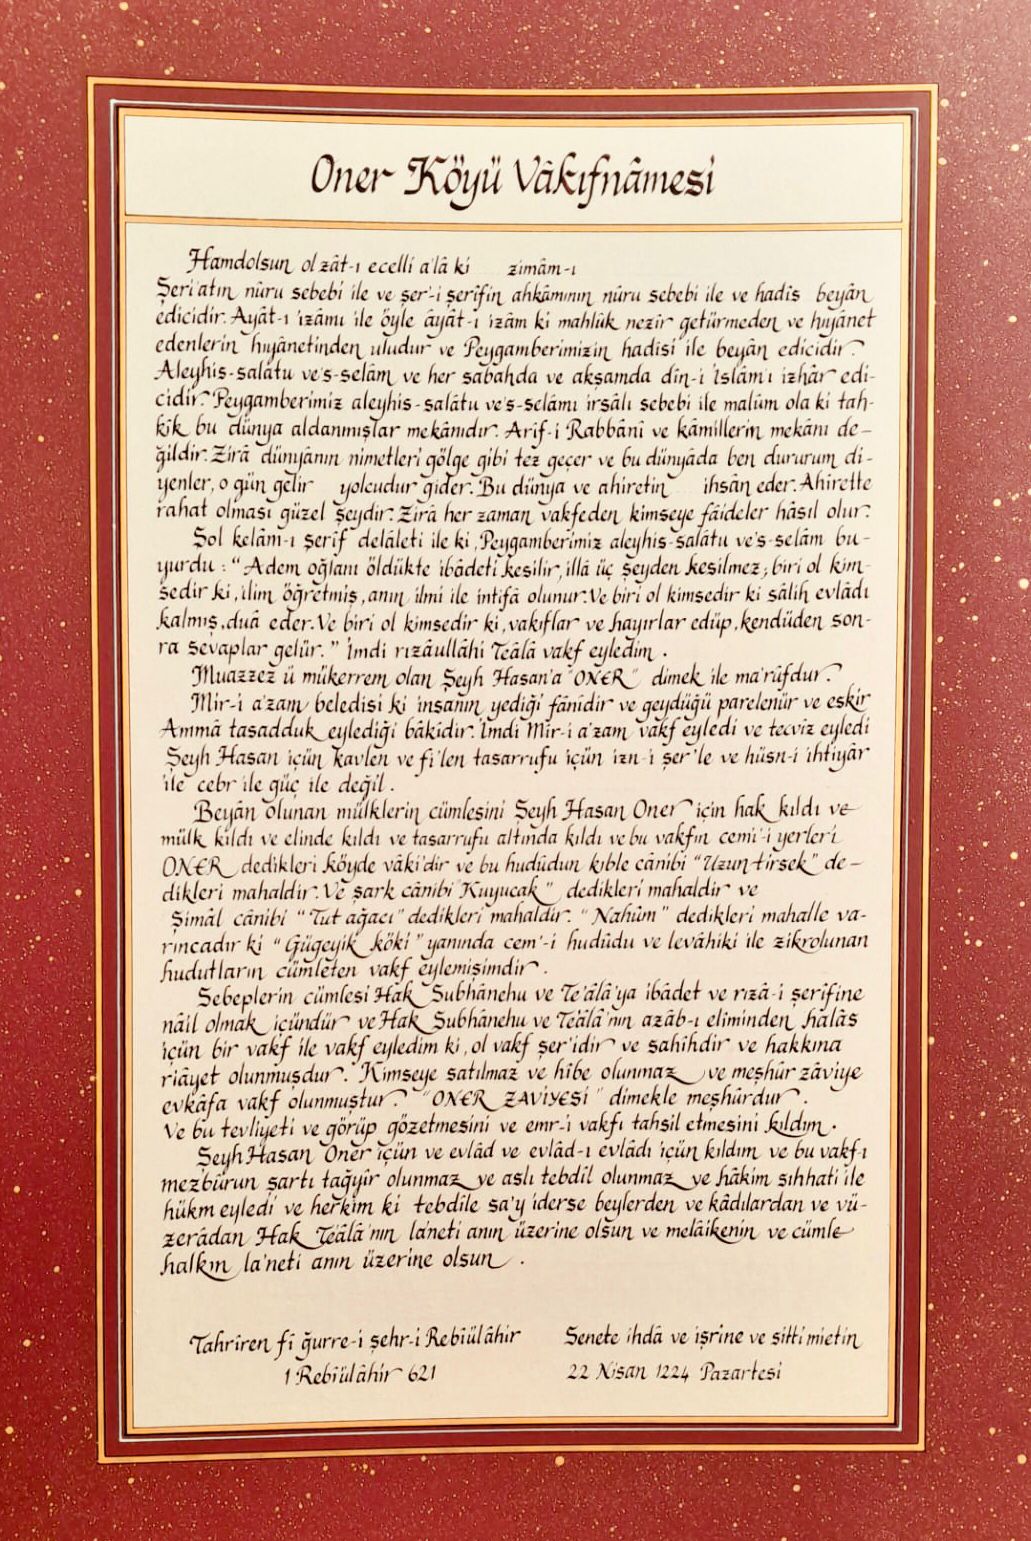 Oner Köyü Vâkıfnâmesi
Hamdolsun ol zât-ı ecelli a'lâ ki zimâm-ı
Şeri'atın nûru sebebi ile ve şer'-i şerîfin ahkâmının nûru sebebi ile ve hadîs beyân
edicidir. Ayât-ı 'izâmı ile öyle âyât-ı izâm ki mahlûk nezîr getürmeden ve hıyânet
edenlerin hıyânetinden uludur ve Peygamberimizin hadisi ile beyân edicidir.
Aleyhis-salâtu ve's-selâm ve her sabahda ve akşamda dîn-i İslâm'ı izhâr edi-
cidir. Peygamberimiz aleyhis-salâtu ve's-selâmı irsâlı sebebi ile malûm ola ki tah-
kîk bu dünya aldanmışlar mekânıdır. Arif-i Rabbânî ve kâmillerin mekânı de-
ğildir. Zirâ dünyânın nimetleri gölge gibi tez geçer ve bu dünyâda ben dururum di-
yenler, o gün gelir yolcudur gider. Bu dünya ve ahiretin ihsân eder. Ahirette
rahat olması güzel şeydir. Zirâ her zaman vakfeden kimseye fâideler hâsıl olur.
Şol kelâm-ı şerîf delâleti ile ki, Peygamberimiz aleyhis-salâtu ve's-selâm bu-
yurdu : "Adem oğlanı öldükte ibâdeti kesilir, illâ üç şeyden kesilmez; biri ol kim-
sedir ki, ilim öğretmiş, anın ilmi ile intifâ olunur. Ve biri ol kimsedir ki sâlih evlâdı
kalmış, duâ eder. Ve biri ol kimsedir ki, vakıflar ve hayırlar edüp, kendüden son-
ra sevaplar gelür." İmdi rızâullâhi Teâlâ vakf eyledim .
Muazzez ü mükerrem olan Şeyh Hasan'a "ONER" dimek ile ma'rûfdur.
Mîr-i a'zam beledisi ki insanın yediği fânidir ve geydüğü parelenür ve eskir
Ammâ tasadduk eylediği bâkidir. İmdi Mîr-i a'zam vakf eyledi ve tecviz eyledi
Şeyh Hasan içün kavlen ve fi'len tasarrufu içün izn-i şer'le ve hüsn-i ihtiyâr
ile cebr ile güç ile değil .
Beyân olunan mülklerin cümlesini Şeyh Hasan Oner için hak kıldı ve
mülk kıldı ve elinde kıldı ve tasarrufu altında kıldı ve bu vakfın cemi'-i yerleri
ONER dedikleri köyde vâki'dir ve bu hudûdun kıble cânibi "Uzun tirsek" de-
dikleri mahaldir. Ve şark cânibi "Kuyucak" dedikleri mahaldir ve
Şimâl cânibi "Tut ağacı" dedikleri mahaldir. "Nahûm" dedikleri mahalle va-
rıncadır ki "Gügeyik köki" yanında cem'-i hudûdu ve levâhiki ile zikrolunan
hudutların cümleten vakf eylemişimdir .
Sebeplerin cümlesi Hak Subhânehu ve Te'âlâ'ya ibâdet ve rızâ-i şerifine
nâil olmak içündür ve Hak Subhânehu ve Teâlâ'nın azâb-ı eliminden halâs
içün bir vakf ile vakf eyledim ki, ol vakf şer'idir ve sahihdir ve hakkına
riâyet olunmuşdur. Kimseye satılmaz ve hîbe olunmaz ve meşhûr zâviye
evkâfa vakf olunmuştur. "ONER ZAVİYESİ" dimekle meşhûrdur .
Ve bu tevliyeti ve görüp gözetmesini ve emr-i vakfı tahsil etmesini kıldım .
Şeyh Hasan Oner içün ve evlâd ve evlâd-ı evlâdı içün kıldım ve bu vakf-ı
mezbûrun şartı tağyîr olunmaz ve aslı tebdil olunmaz ve hâkim sıhhati ile
hükm eyledi ve herkim ki tebdîle sa'y iderse beylerden ve kâdılardan ve vü-
zerâdan Hak Teâlâ'nın la'neti anın üzerine olsun ve melâikenin ve cümle
halkın la'neti anın üzerine olsun .
Tahrîren fî ğurre-i şehr-i Rebîülâhir
1 Rebîülâhir 621
Senete ihdâ ve işrîne ve sitti mietin
22 Nisan 1224 Pazartesi